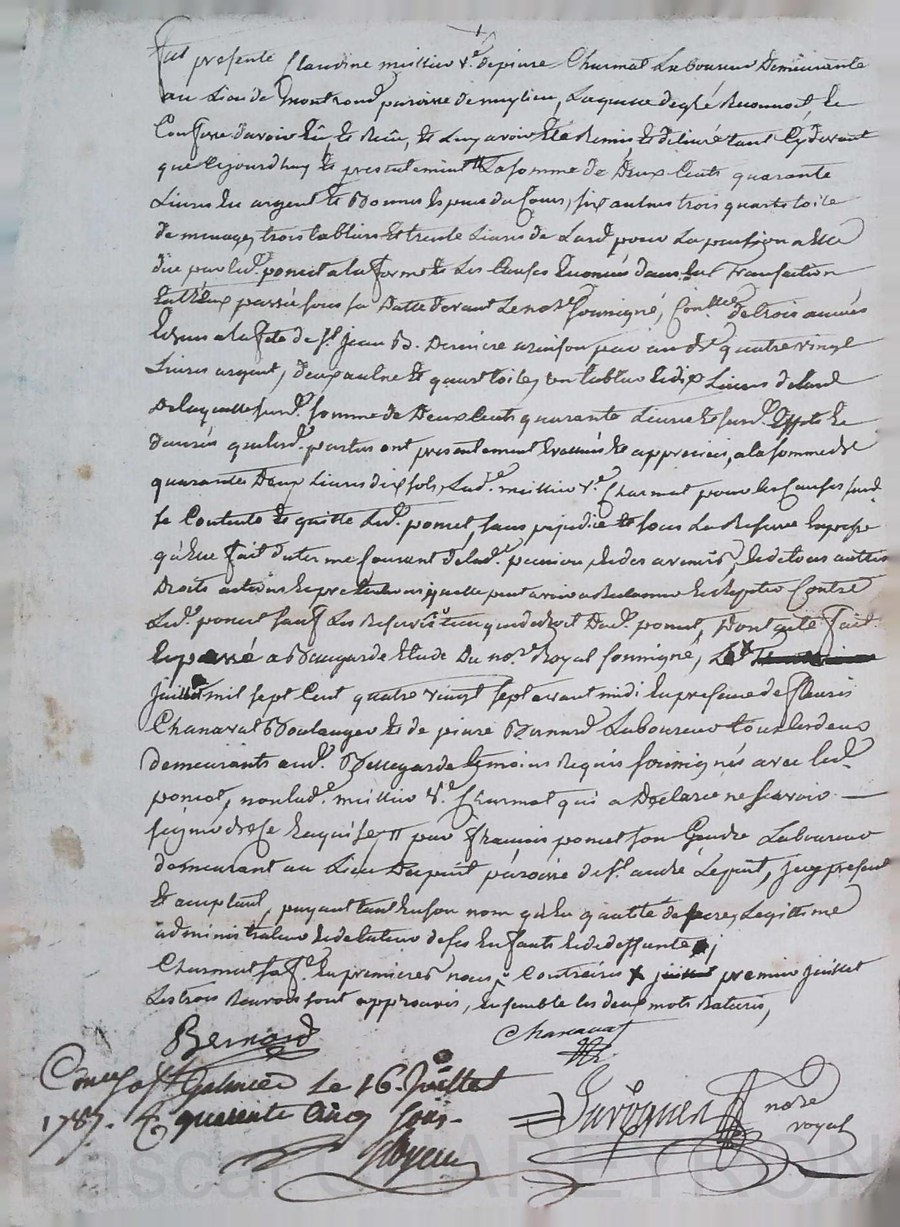 Fut presente Claudine meillier v.e de pierre Charmat Laboureur Demeurante
au Lieu de Montrond paroisse de Laquelle degré Reconnoit Et
Confesse d'avoir Eû, Et Reçu, Et Luy avoir Eté Remis, Et delivré tant Cydevant
que Cejourdhuy Et presentement La somme de Deux Cents quarante
Livres En argent Et Bonnes Especes du Cours, six aulnes trois quarts toile
De menage, trois tabliers Et trente Livres de Lard pour La pension a Elle
düe par led. poncet a la forme Et Les Causes Enoncées dans La Transaction
Entr'Eux passée sous sa Datte devant Le no.re soussigné, de trois années
Echues a la fete de S.t Jean B. Derniere a raison par an de quatre vingt
Livres argent, deux aulne Et quart toile, un tablier Et dix Livres de Lard
De laquelle sus.d. somme de Deux Cents quarante Livres Et sus.d. Effets Et
Danrées que lesd. parties ont presentement Evalués Et appreciés, a la somme de
quarante Deux Livres dix sols, Lad.e meillier v.e Charmat pour les Causes susd.
se Contente Et quitte Led. poncet, sans prejudice Et sous La Reserve Expresse
qu'Elle fait du terme Courant de lad.e pension, Et des avenir, Et de tous autres
Droits actions Et pretentions quelle peut avoir a Reclamer Et Repeter Contre
Led. poncet sauf Les Reserves Dud. poncet, Dont acte fait
Et passé a Bellegarde Etude Du no.re Royal soussigné, Le
Juillet mil sept Cent quatre vingt sept avant midi En presence de fleuris
Chanavat Boulanger Et de pierre Bernard Laboureur tous les deux
demeurants aud. Bellegarde temoins Requis soussignés avec led.
poncet, non lad.e meillier v.e Charmat qui a Declaré ne scavoir
signer de ce Enquise, par françois poncet son Gendre Laboureur
demeurant au Lieu Dupuit paroisse de S.t andré Lepuit, jcy present
Et acceptant, payant tant En son nom qu'En qualité de pere, Legitime
administrateur Et de tuteur de ses Enfants Et de deffunte
Charmat sa f.e En premieres noces juillet premier juillet
Les trois Renvois sont approuvés, Ensemble les deux mots Raturés,
Bernard Chanavat
Galmier le 16. Juillet
1787. quarente Cinq sous
no.re
royal